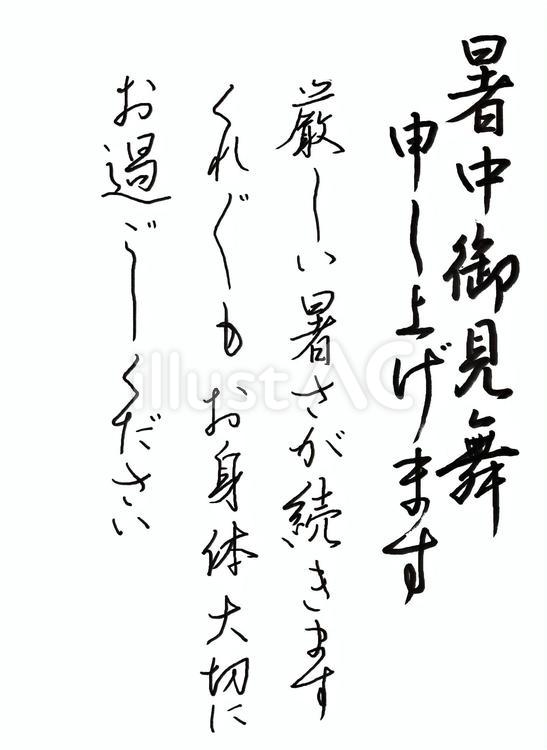 暑中御見舞
申し上げます
厳しい暑さが続きます
くれ〴〵もお身体大切に
お過ごしください
illustAC